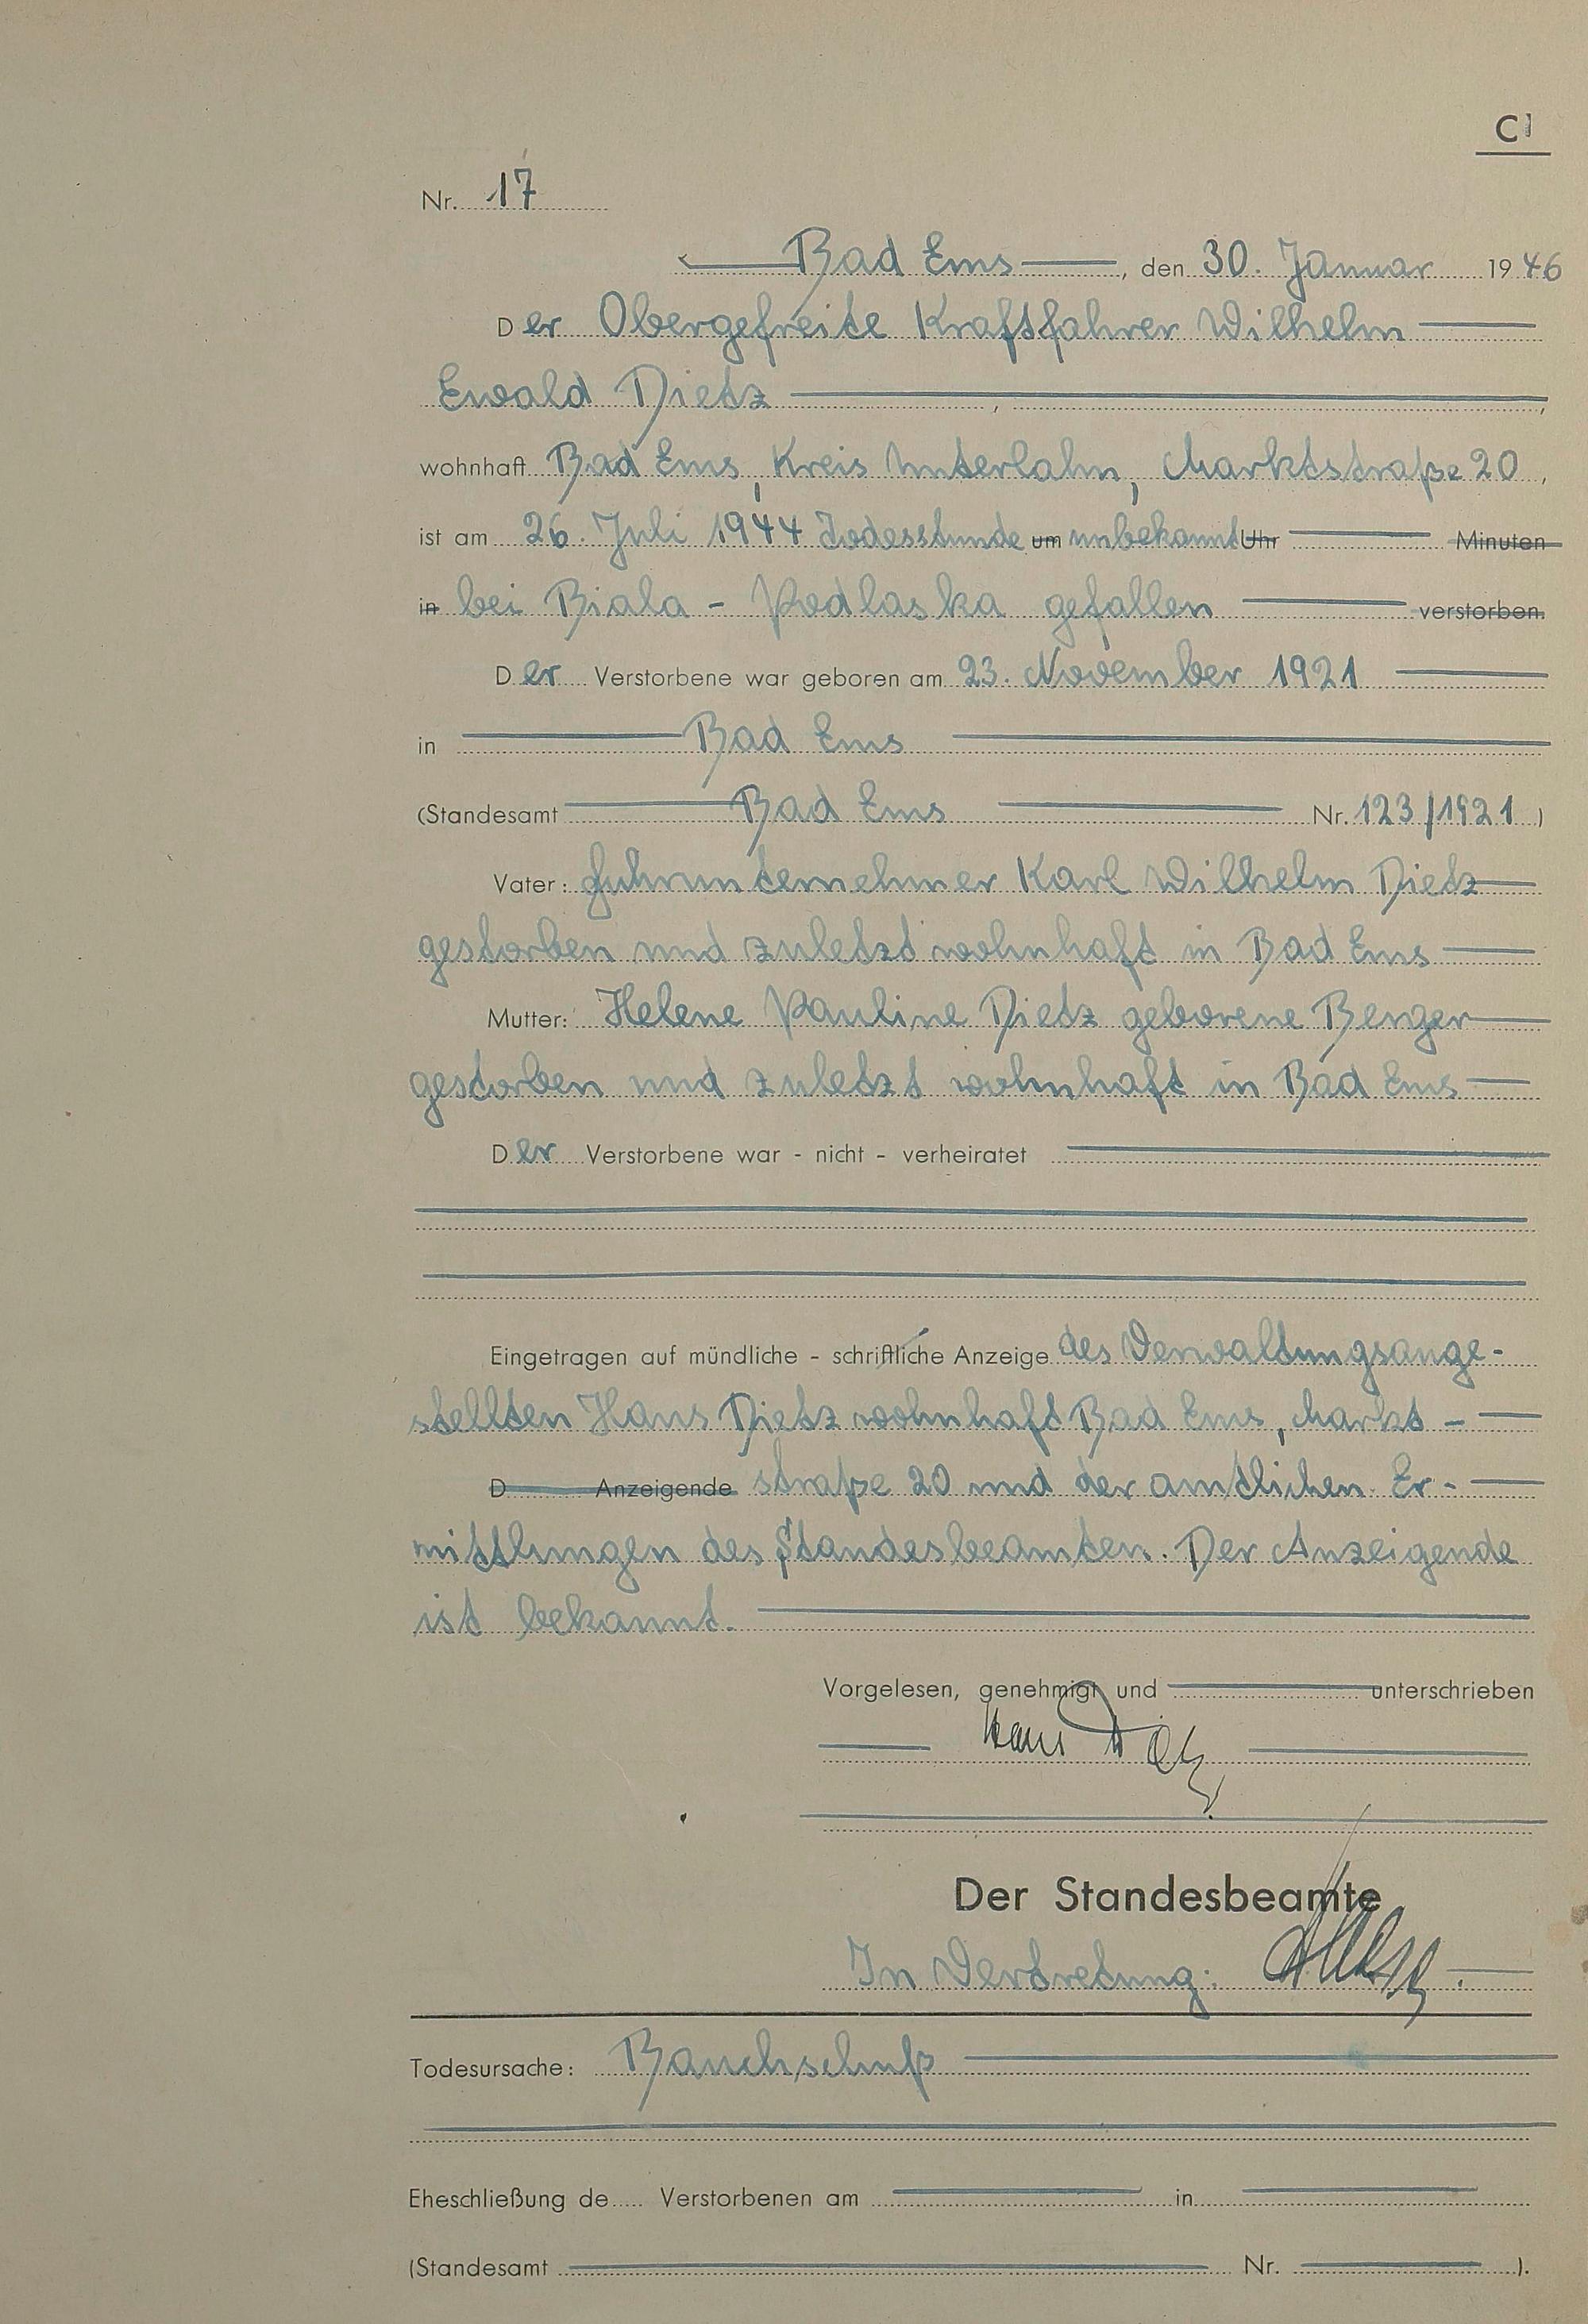 C
Nr. 17
Bad Ems, den 30. Januar 1946
Der Obergefreite Kraftfahrer Wilhelm
Ewald Dietz,
wohnhaft Bad Ems, Kreis Unterlahn, Marktstraße 20,
ist am 26. Juli 1944 Todesstunde um unbekannt Uhr Minuten
in bei Biala - Podlaska gefallen verstorben.
Der Verstorbene war geboren am 23. November 1921
in Bad Ems
(Standesamt Bad Ems Nr. 123/1921)
Vater: Fuhrunternehmer Karl Wilhelm Dietz
gestorben und zuletzt wohnhaft in Bad Ems
Mutter: Helene Pauline Dietz geborene Berger
gestorben und zuletzt wohnhaft in Bad Ems
Der Verstorbene war - nicht - verheiratet
Eingetragen auf mündliche - schriftliche Anzeige des Verwaltungsange-
stellten Hans Dietz wohnhaft Bad Ems, Markt-
D Anzeigende straße 20 und der amtlichen Er-
mittlungen des Standesbeamten. Der Anzeigende
ist bekannt.
Vorgelesen, genehmigt und unterschrieben
Hans Dietz
Der Standesbeamte
In Vertretung:
Todesursache: Bauchschuß
Eheschließung de Verstorbenen am in
(Standesamt Nr. ).